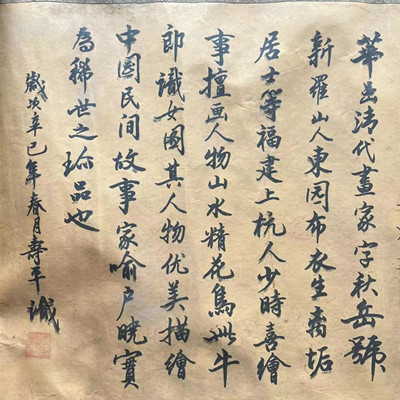 華喦清代畫家字秋岳號
新羅山人東园布衣生离垢
居士等福建上杭人少時喜繪
事擅画人物山水精花鳥此牛
郎識女图其人物优美描繪
中国民间故事家喻户曉實
為稀世之珍品也
歲次辛巳年春月壽平識